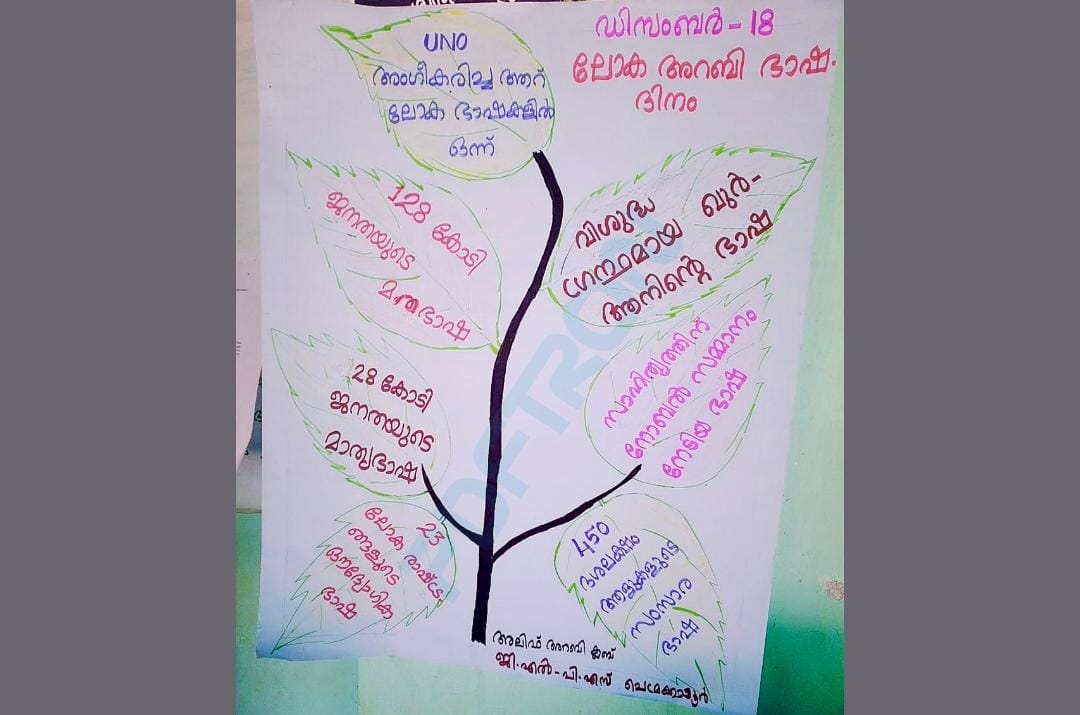 ഡിസംബർ - 18
ലോക അറബി ഭാഷ
ദിനം
UNO
അംഗീകരിച്ച ആറ്
ലോക ഭാഷകളിൽ
ഒന്ന്
128 കോടി
ജനതയുടെ
മതഭാഷ
വിശുദ്ധ
ഗ്രന്ഥമായ ഖുർ-
ആനിന്റെ ഭാഷ
28 കോടി
ജനതയുടെ
മാതൃഭാഷ
സാഹിത്യത്തിന്
നോബൽ സമ്മാനം
നേടിയ ഭാഷ
23
ലോക രാഷ്ട്ര
ങ്ങളുടെ
ഔദ്യോഗിക
ഭാഷ
450
ദശലക്ഷം
ആളുകളുടെ
സംസാര
ഭാഷ
അലിഫ് അറബി ക്ലബ്
ജി.എൽ-പി.എസ്
SOFTRONI